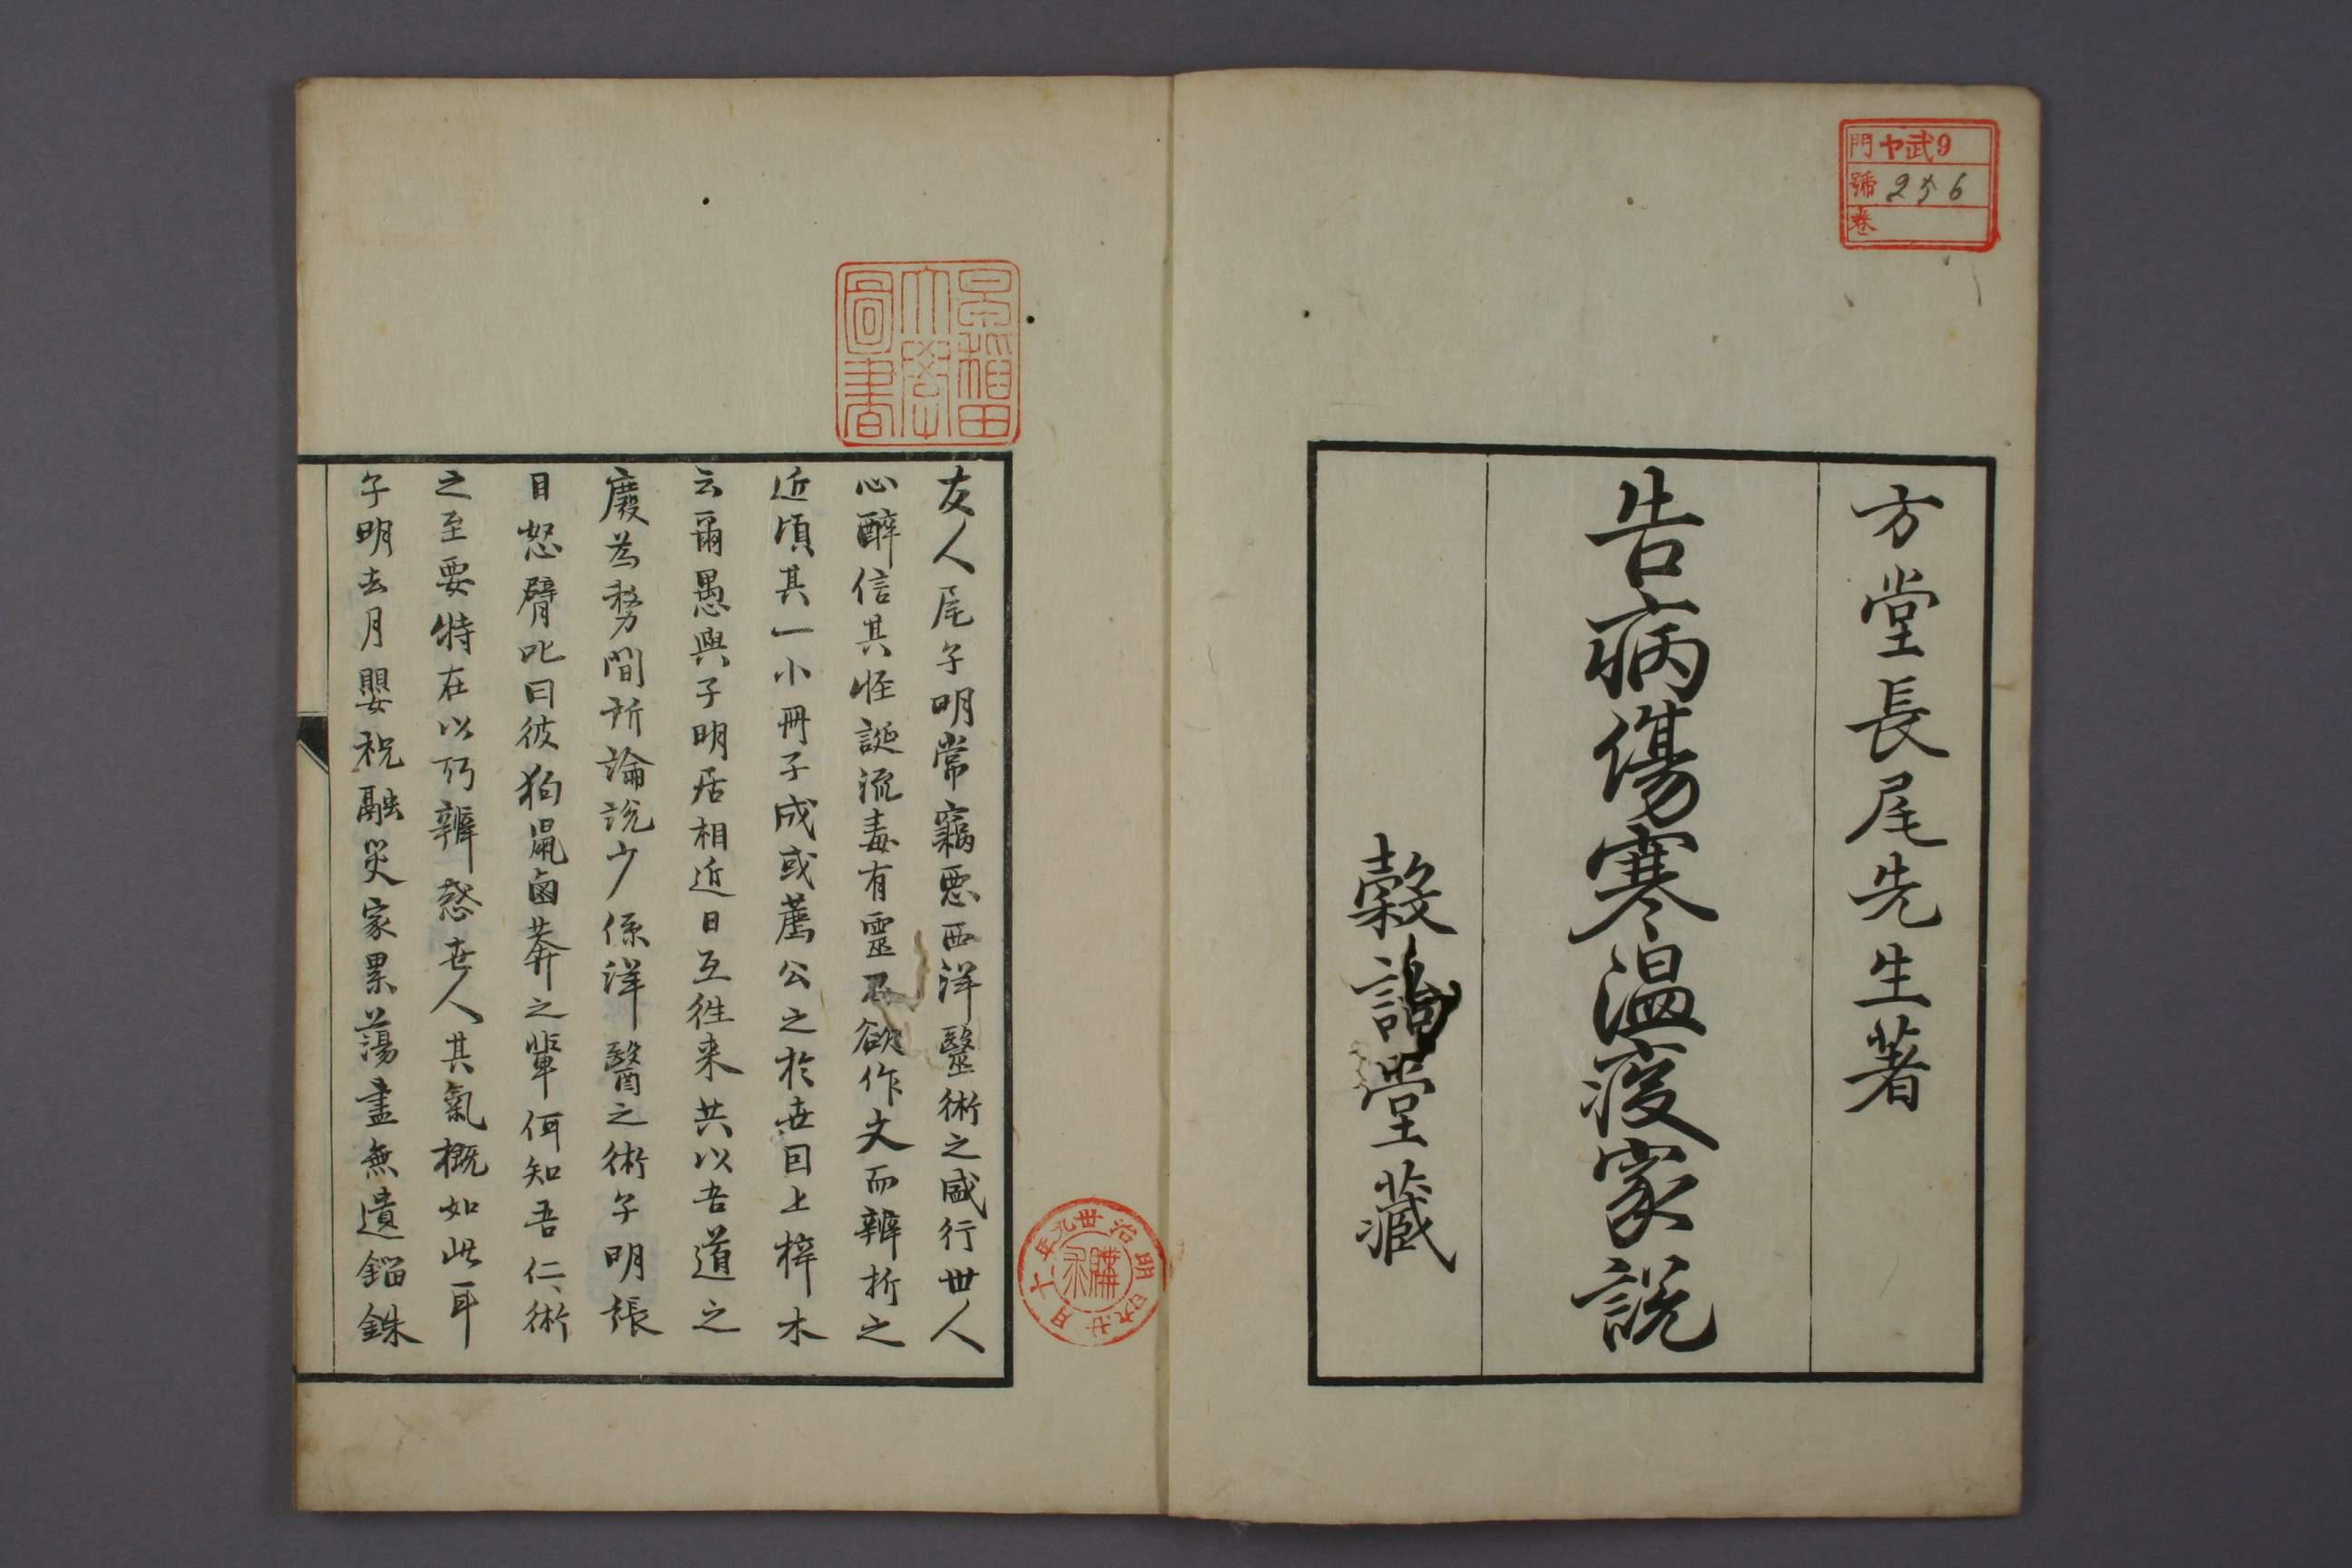 門 ヤ武9
號 256
卷
方堂長尾先生著
告病傷寒温疫家說
穀詒堂藏
早稲田大學圖書
明治卅九年十月廿九日
友人尾子明常竊惡西洋毉術之盛行世人
心醉信其怪誕流毒有靈 欲作文而辨折之
近頃其一小冊子成或薦公之於世因上梓木
云爾愚與子明居相近日互徃来共以吾道之
廢為務間所論説少係洋醫之術子明張
目怒臂叱曰彼狗鼠鹵莽之輩何知吾仁術
之至要特在以巧辨惑世人其氣概如此耳
子明去月嬰祝融災家累蕩盡無遺錙銖